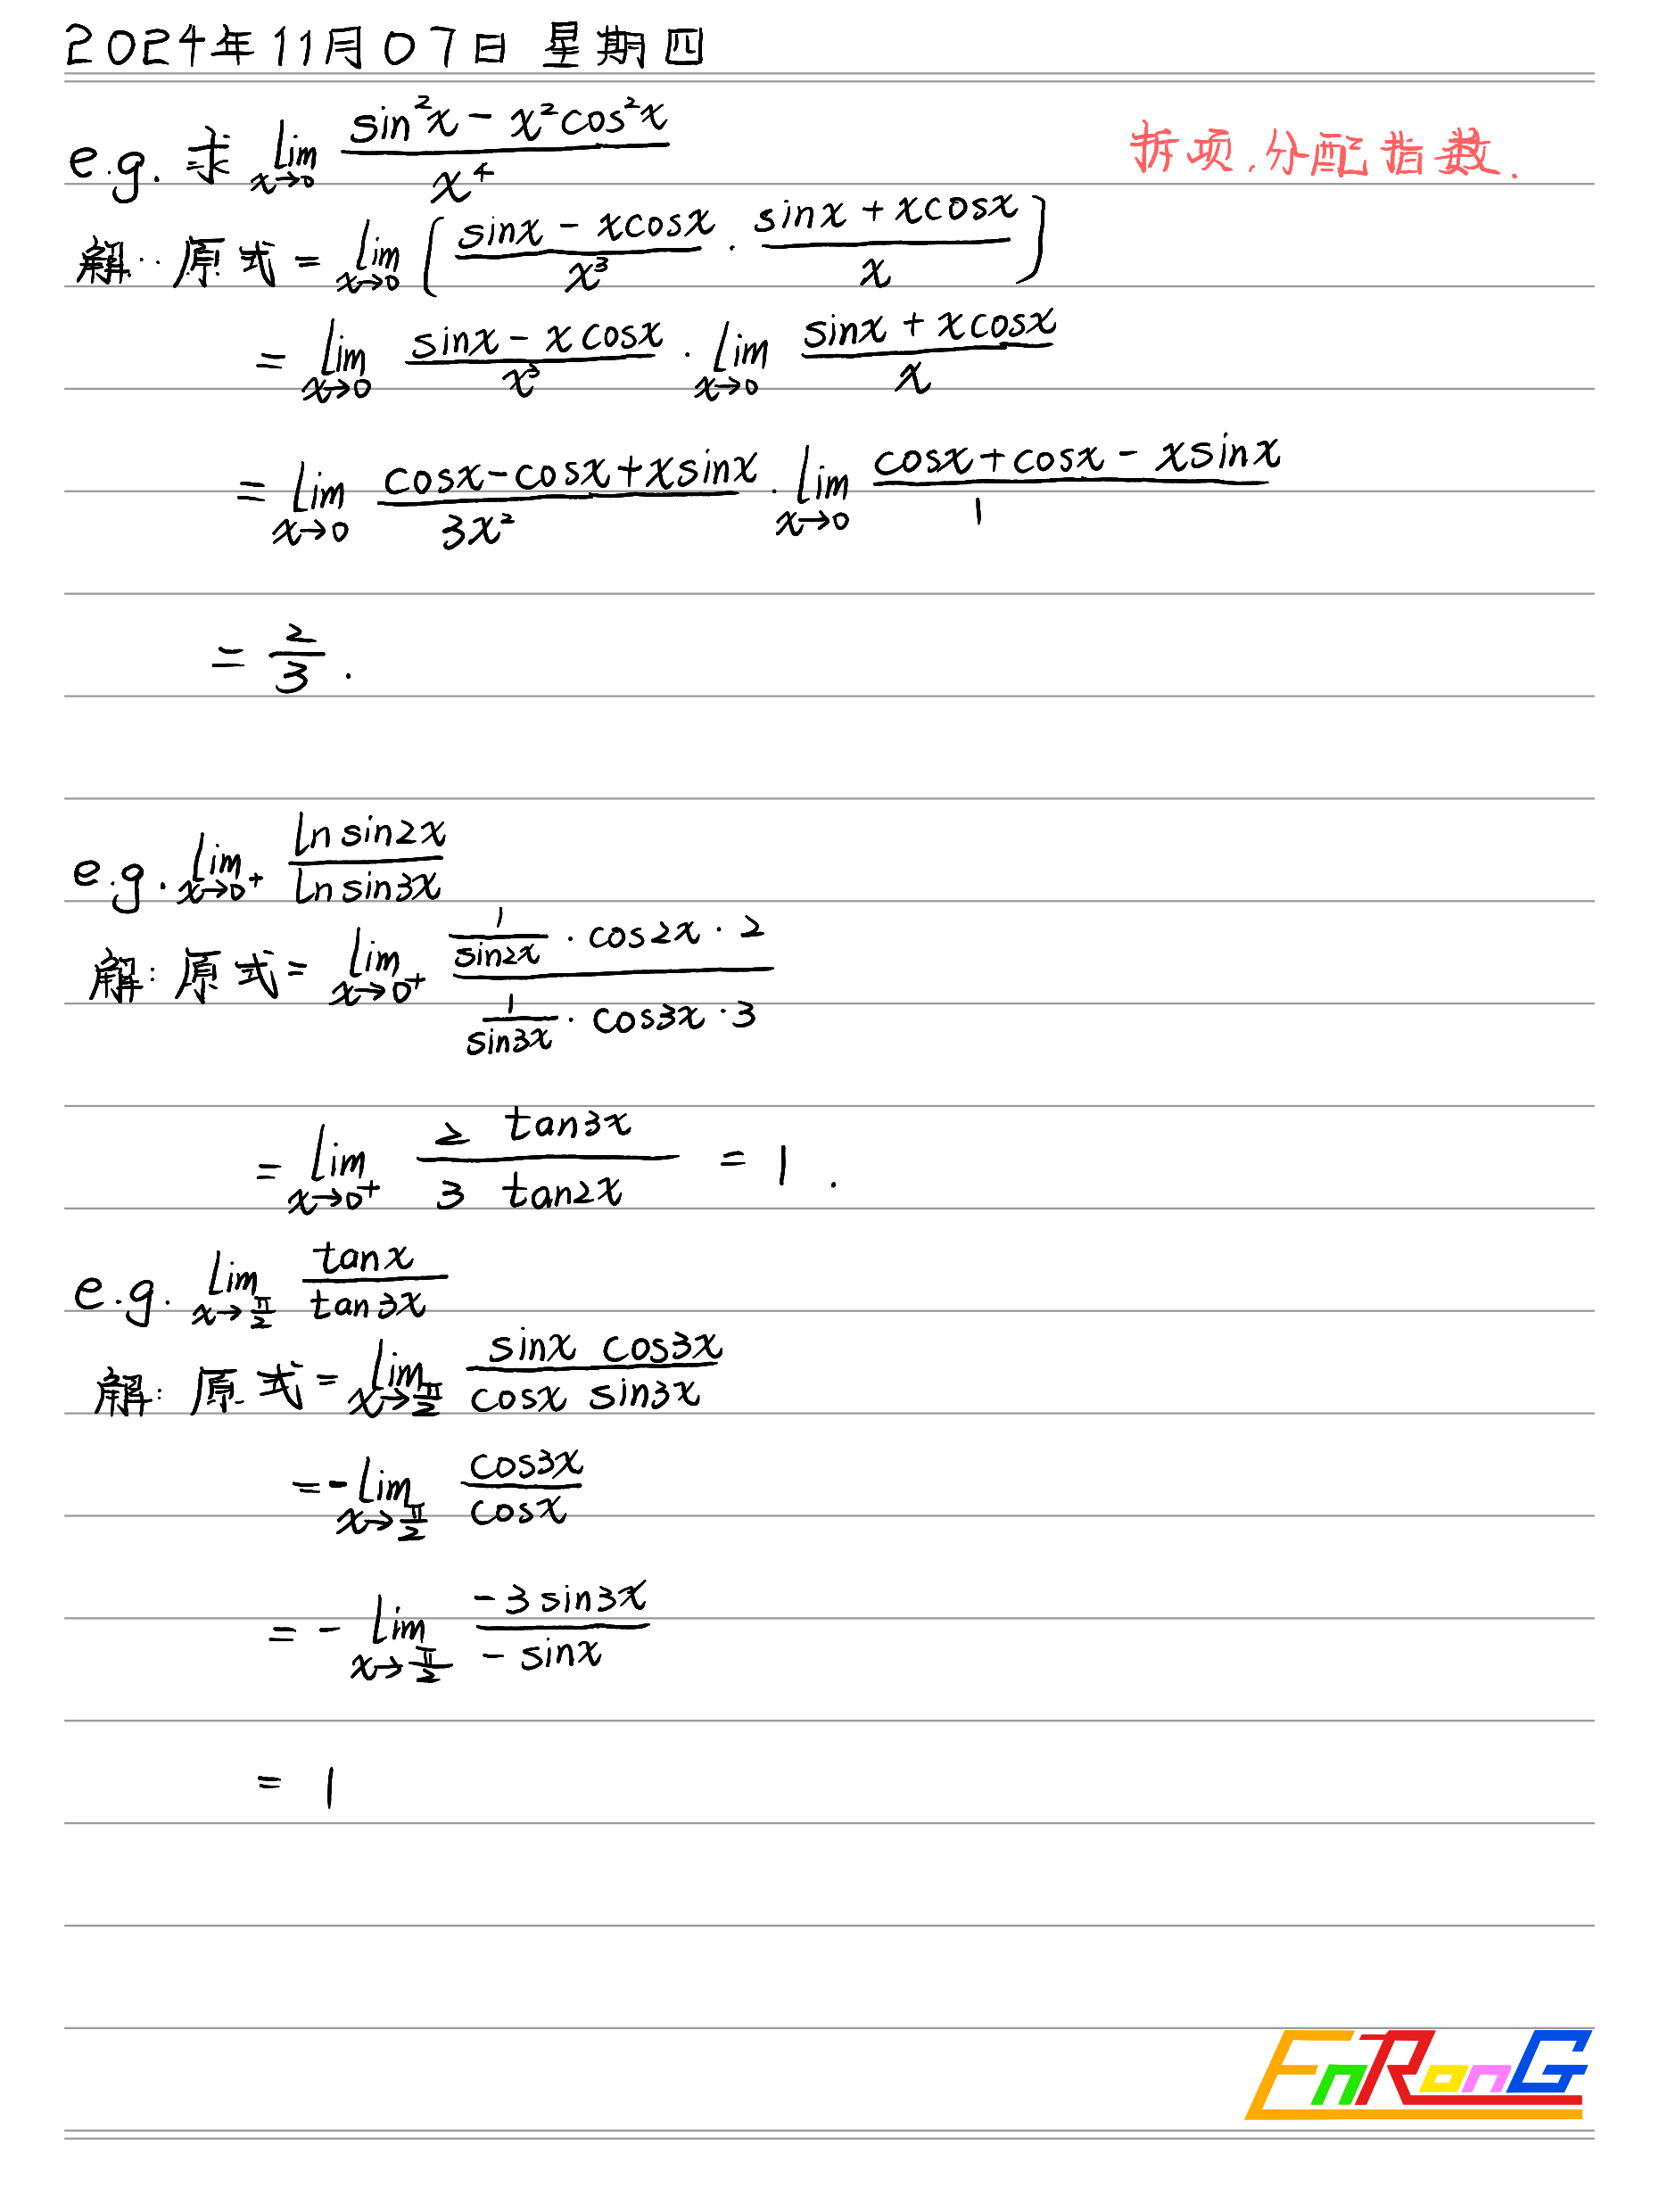 2024年11月07日 星期四
e.g. 求 lim_{x→0} (sin²x - x²cos²x)/x⁴ 拆项,分配指数.
解: 原式 = lim_{x→0} [(sinx - xcosx)/x³ · (sinx + xcosx)/x]
= lim_{x→0} (sinx - xcosx)/x³ · lim_{x→0} (sinx + xcosx)/x
= lim_{x→0} (cosx - cosx + xsinx)/3x² · lim_{x→0} (cosx + cosx - xsinx)/1
= 2/3 .
e.g. lim_{x→0⁺} (ln sin2x)/(ln sin3x)
解: 原式 = lim_{x→0⁺} (1/sin2x · cos2x · 2)/(1/sin3x · cos3x · 3)
= lim_{x→0⁺} (2 tan3x)/(3 tan2x) = 1 .
e.g. lim_{x→π/2} tanx/tan3x
解: 原式 = lim_{x→π/2} (sinx cos3x)/(cosx sin3x)
= - lim_{x→π/2} cos3x/cosx
= - lim_{x→π/2} (-3sin3x)/(-sinx)
= 1
EnRonG